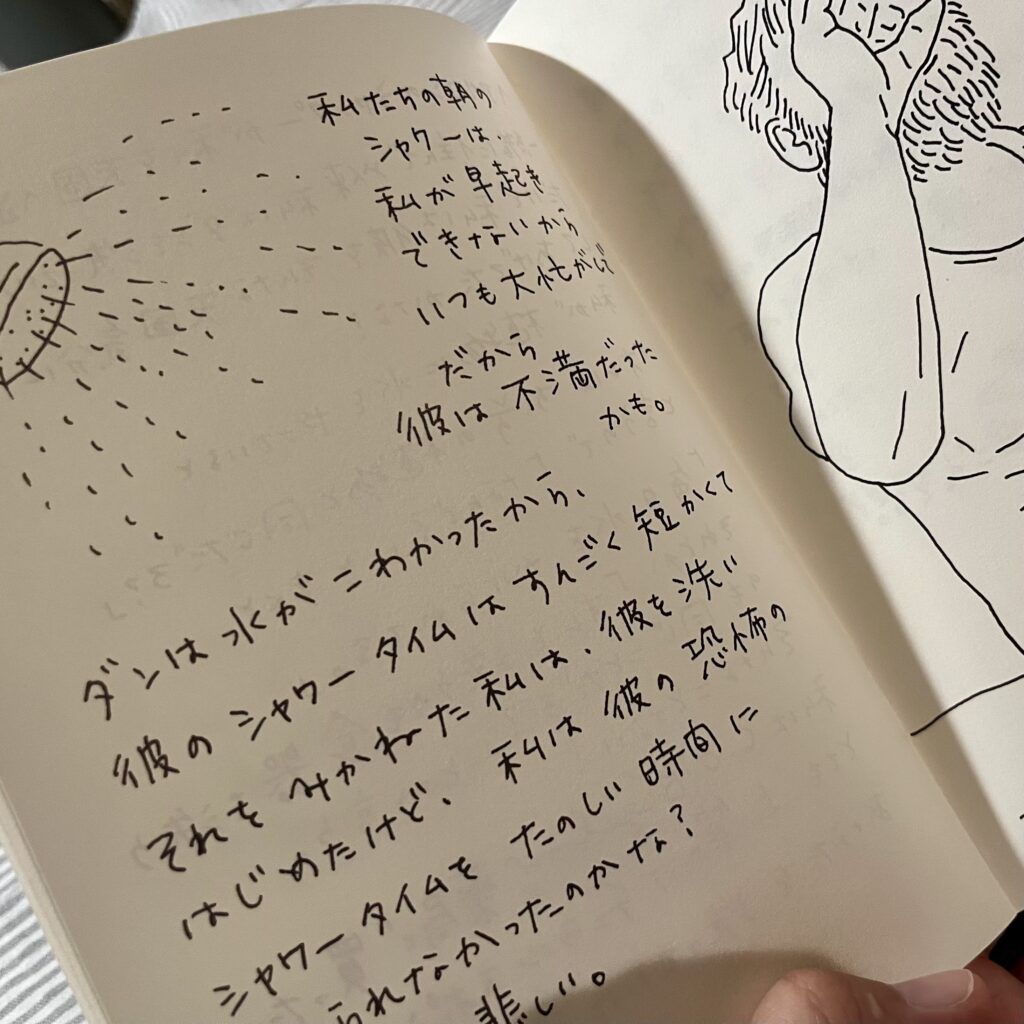 私たちの朝の
シャワーは、
私が早起き
できないから
いつも大忙がしで
だから
彼は不満だった
かも。
ダンは水がこわかったから、
彼のシャワータイムはすんごく短かくて
それをみかねた私は、彼を洗い
はじめたけど、私は彼の恐怖の
シャワータイムをたのしい時間に
られなかったのかな?
悲しい。